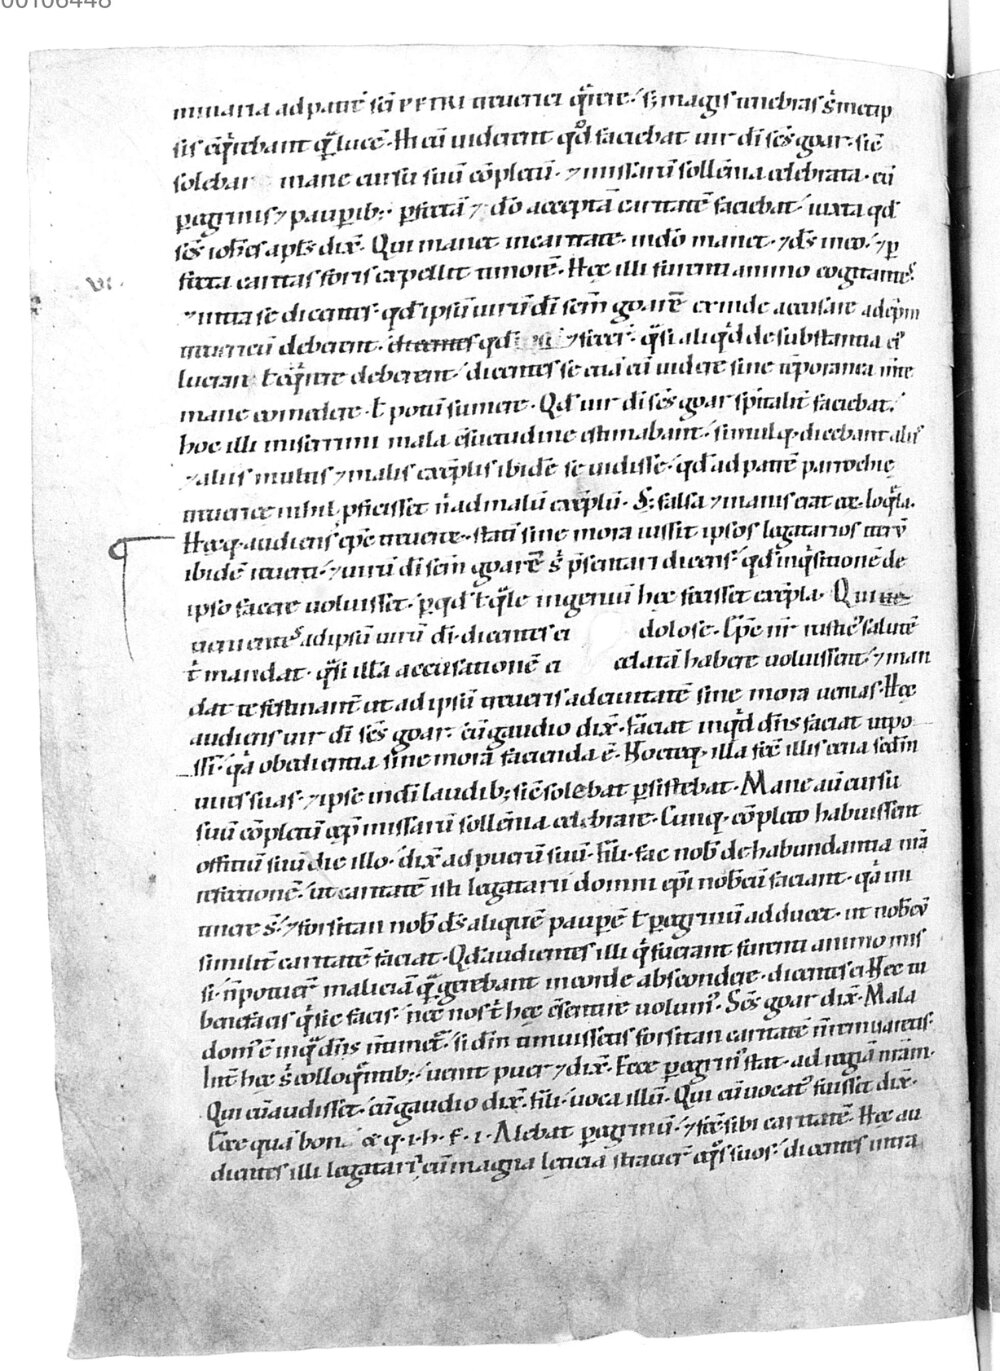 00106448
minaria ad partē sc̄i PETRI treuerici q̄rere. s; magis tenebras s̄ metip
sis cq̄rebant q̄ lucē. Hi cū uiderent qd̄ faciebat uir dī sc̄s goar. sic̄
solebat mane cursū suū cōpletū. ⁊ missarū sollēnia celebrata. cū
ꝑegrinis ⁊ pauꝑib; ꝑfectā ⁊ dō acceptā caritatē faciebat. iuxta qd̄
sc̄s ioh̄es apl̄s dix̄. Qui manet in caritate. in dō manet. ⁊ ds̄ in eo. ⁊ ꝑ
fecta caritas foris expellit timorē. Hęc illi furenti animo cogitantes
VI.
⁊ intra se dicentes. qd̄ ipsū uirū dī sc̄m goarē exinde accusare ad ep̄m
treuericū deberent. dicentes qd̄ ipsi ⁊ sic̄er. q̄si aliq̄d de substantia ei
luerant ł cq̄rere deberent. dicentes se etiā cū uidere sine tēporanea ñire
mane comedere. ł potū sumere. Qd̄ uir dī sc̄s goar spītalit̄ faciebat.
hoc illi miserrimi mala c̄suetudine estimabant. simulq; dicebant aliis
⁊ aliis multis ⁊ malis exēplis ibidē se uidisse. qd̄ ad partē parrochię
treuericę nihil ꝑficisset n̄ ad malū exēplū. S; falsa ⁊ manis erat ee loq̄la.
Hęcq; audiens ep̄c treuericę. statī sine mora iussit ipsos legatarios iterū
ibidē reuerti. ⁊ uirū dī sc̄m goarē s̄ p̄sentari dicens. qd̄ inq̄sitionē de
ipso facere uoluisset. ꝑ qd̄ ł q̄le ingeniū hęc fecisset exēpla. Qui
uenientes ad ipsū uirū dī. dicentes ei dolose. Ep̄c nr̄ rustic salutē
t̄ mandat. q̄si illā accusationē ei celatā habere uoluissent. ⁊ man
dat te festinantē ut ad ipsū treueris ad ciuitatē sine mora uenias. Hęc
audiens uir dī sc̄s goar. cū gaudio dix̄. Faciat inq̄d dn̄s faciat ut po
ssī. q̄a obedientia sine mora facienda ē. Hocteq; illa fec̄ illis cena sedm̄
uires suas. ⁊ ipse in dī laudib; sic̄ solebat ꝑsistebat. Mane aū cursū
suū cōpletū cep̄ missarū sollēnia celebrare. Cunq; cōpleto habuissent
offitiū suū die illo. dix̄ ad puerū suū. Fili fac nob̄ de habundantia n̄rā
refectionē. ut caritatē isti legatarii domni ep̄i nob̄cū faciant. q̄a iti
tinere s̄. ⁊ forsitan nob̄ ds̄ aliquē pauperē ł ꝑegrinū adducet. ut nob̄cū
similit̄ caritatē faciat. Qd̄ audientes illi q̄ fuerant furenti animo mis
si. n̄ potuer̄ maliciā q̄ gerebant in corde abscondere. dicentes ei. Hęc tu
benefacis q̄ sic facis. nec̄ nos t̄ hęc c̄sentire uolum'. Sc̄s goar dix̄. Mala
dom' ē inq̄ dn̄s n̄ timet̄. si dm̄ timuissetis forsitan caritatē n̄ renuaretis.
Int̄ hęc s̄ colloq̄ntib; uenit puer ⁊ dix̄. Ecce ꝑegrin' stat. ad regiā n̄rām.
Qui cū audisset. cū gaudio dix̄. Fili uoca illū. Qui cū uocat' fuisset dix̄.
Ecce quā bon. ę. q. i. h. F. i. Alebat ꝑegrinū. ⁊ fec̄ sibi caritatē. Hęc au
dientes illi legatarī cū magna leticia strauer̄ eq̄s suos. dicentes intra